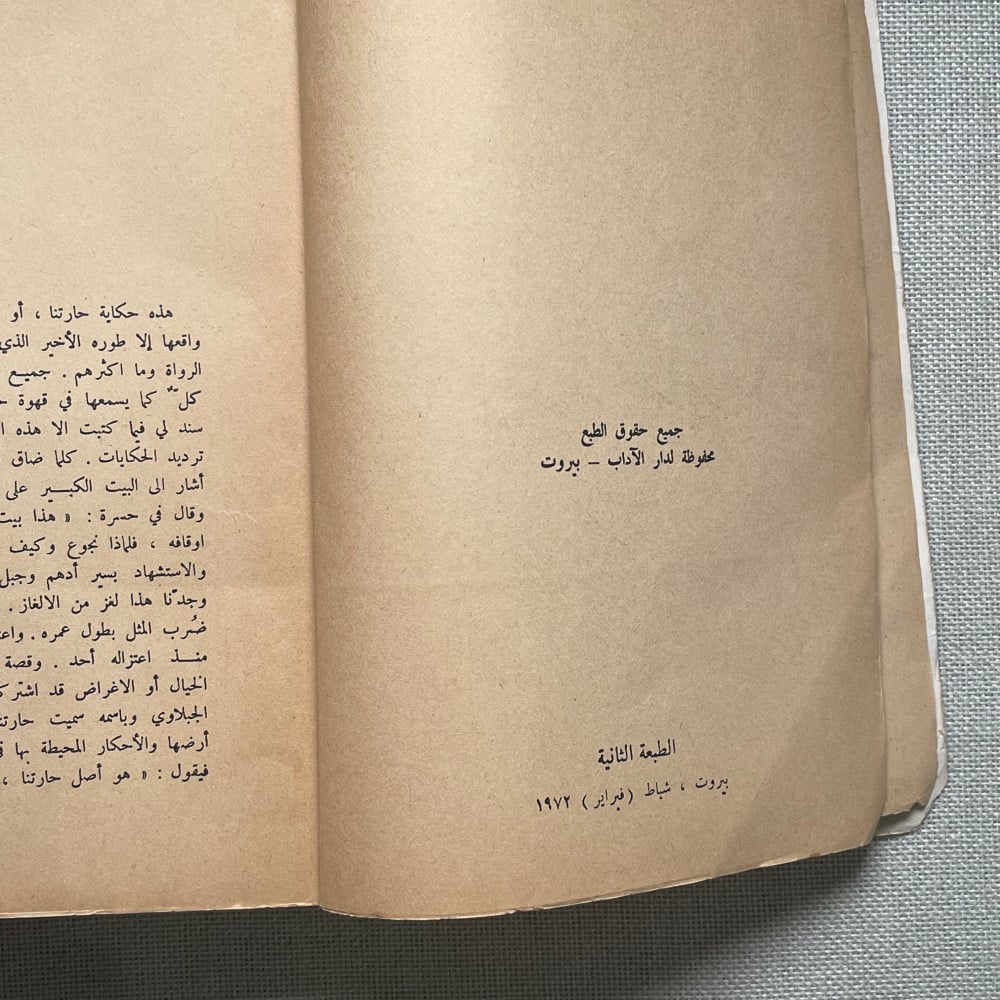 جميع حقوق الطبع
محفوظة لدار الآداب – بيروت
الطبعة الثانية
بيروت ، شباط (فبراير) ١٩٧٢
هذه حكاية حارتنا ، أو
واقعها إلا طوره الأخير الذي
الرواة وما اكثرهم . جميع
كلٌّ كما يسمعها في قهوة
سند لي فيما كتبت الا هذه
ترديد الحكايات . كلما ضاق
أشار الى البيت الكبير على
وقال في حسرة : « هذا بيت
اوقافه ، فلماذا نجوع وكيف
والاستشهاد بسير أدهم وجبل
وجدّنا هذا لغز من الالغاز .
ضُرب المثل بطول عمره .
منذ اعتزاله أحد . وقصة
الخيال أو الاغراض قد
الجبلاوي وباسمه سميت
أرضها والأحكار المحيطة بها
فيقول : « هو أصل حارتنا ،